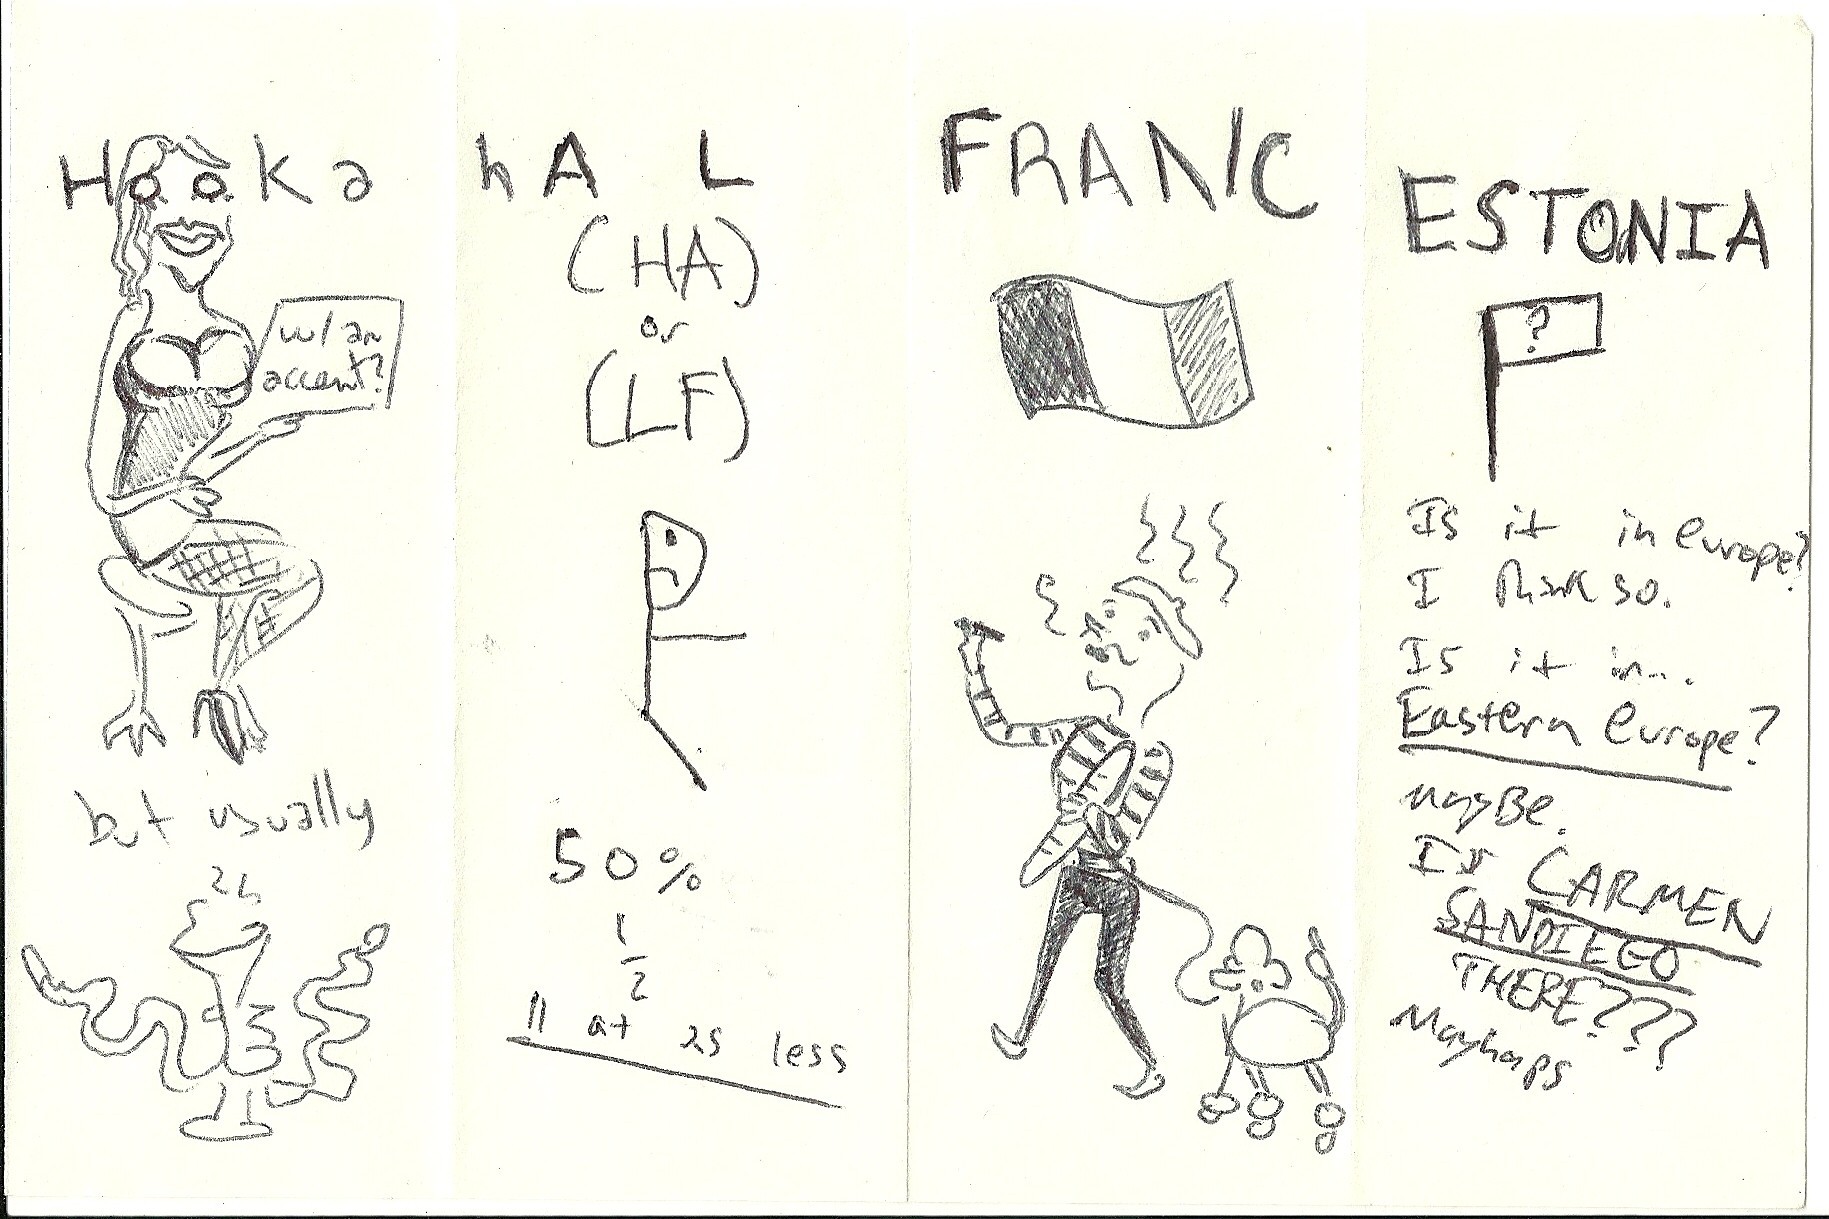 HOOKa
w/ an
accent?
but usually
hA L
(HA)
or
(LF)
50%
1
2
11 at 25 less
FRANC
ESTONIA
?
Is it in europe?
I think so.
Is it in...
Eastern europe?
maybe.
Is CARMEN
SANDIEGO
THERE???
Mayhaps